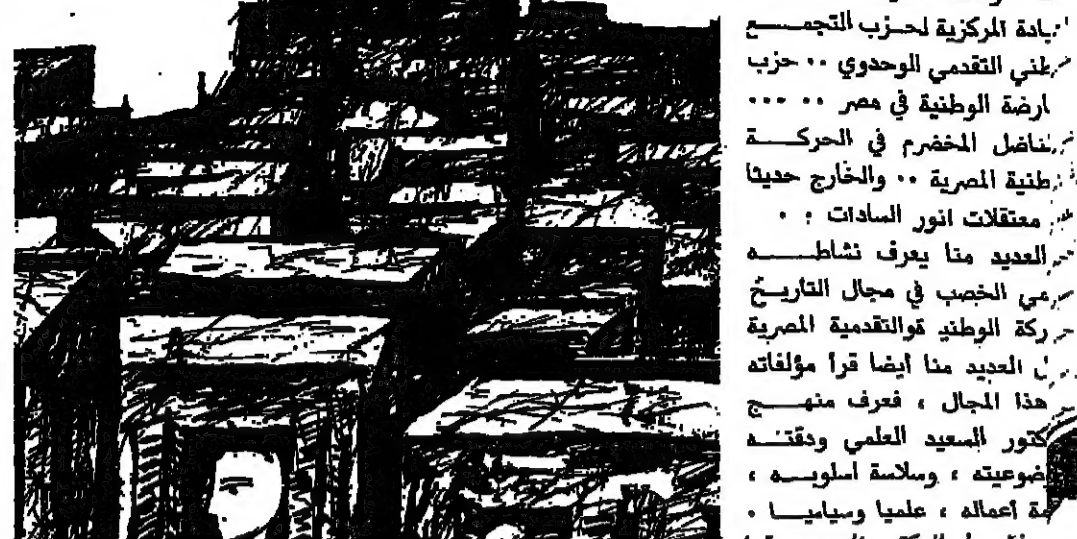 يادة المركزية لحزب التجمع
طني التقدمي الوحدوي .. حزب
ارضة الوطنية في مصر .. ...
ناضل المخضرم في الحركة
طنية المصرية .. والخارج حديثا
معتقلات انور السادات . .
العديد منا يعرف نشاطه
عي الخصب في مجال التاريخ
ركة الوطنيد ةوالتقدمية المصرية
العديد منا أيضا قرأ مؤلفاته
هذا المجال ، فعرف منهج
كتور السعيد العلمي ودقته
ضوعيته ، وسلاسة اسلوبه ،
مة أعماله ، علميا وسياسيا .